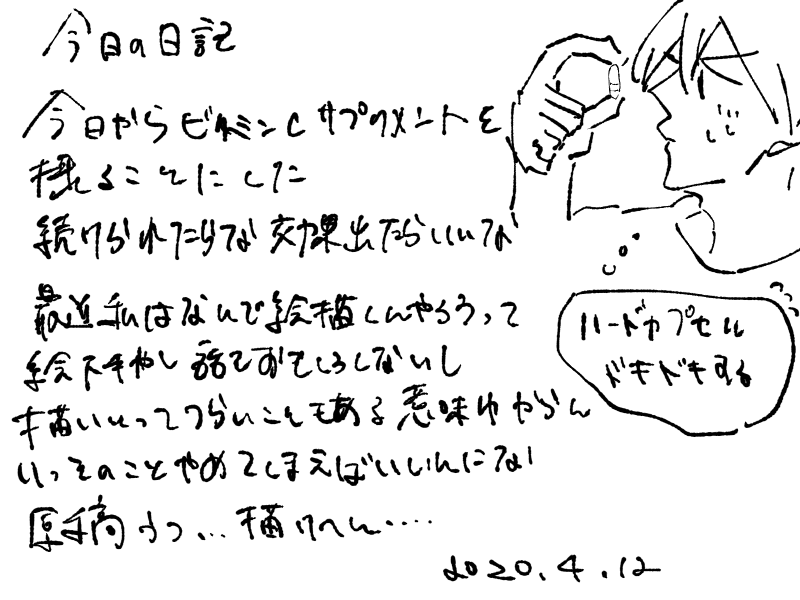 今日の日記
今日からビタミンCサプリメントを
摂ることにした
続けられたらな 効果出たらいいな
最近私はなんで絵描くんやろうって
絵下手やし 話もおもしろくないし
描いとってつらいこともある 意味わからん
いっそのことやめてしまえばいいんにな
原稿うっ…描けへん….
2020.4.12
ハードカプセル
ドキドキする